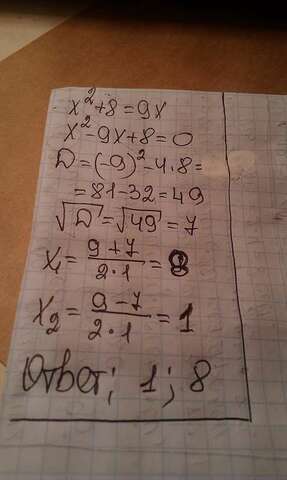 x²+8=9x
x²-9x+8=0
D=(-9)²-4·8=
=81-32=49
√D=√49=7
x₁=(9+7)/(2·1)=8
x₂=(9-7)/(2·1)=1
Ответ; 1; 8